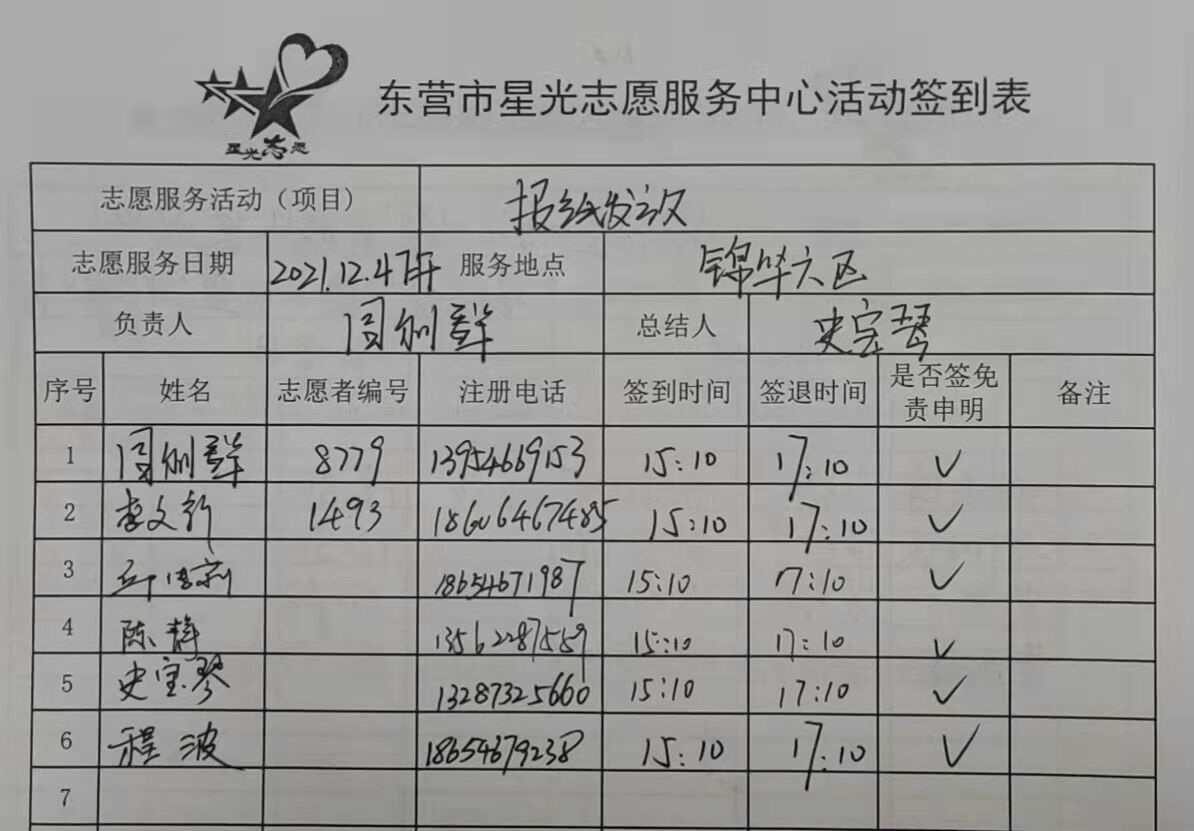 星光志愿
东营市星光志愿服务中心活动签到表
志愿服务活动（项目） 报纸发放
志愿服务日期 2021.12.4下午 服务地点 锦华六区
负责人 总结人 史宝琴
序号 姓名 志愿者编号 注册电话 签到时间 签退时间 是否签免责申明 备注
1 8779 13954669153 15:10 17:10 ✓
2 李文新 1493 18606467485 15:10 17:10 ✓
3 18654671987 15:10 17:10 ✓
4 陈静 13562287559 15:10 17:10 ✓
5 史宝琴 13287325660 15:10 17:10 ✓
6 程波 18654679238 15:10 17:10 ✓
7